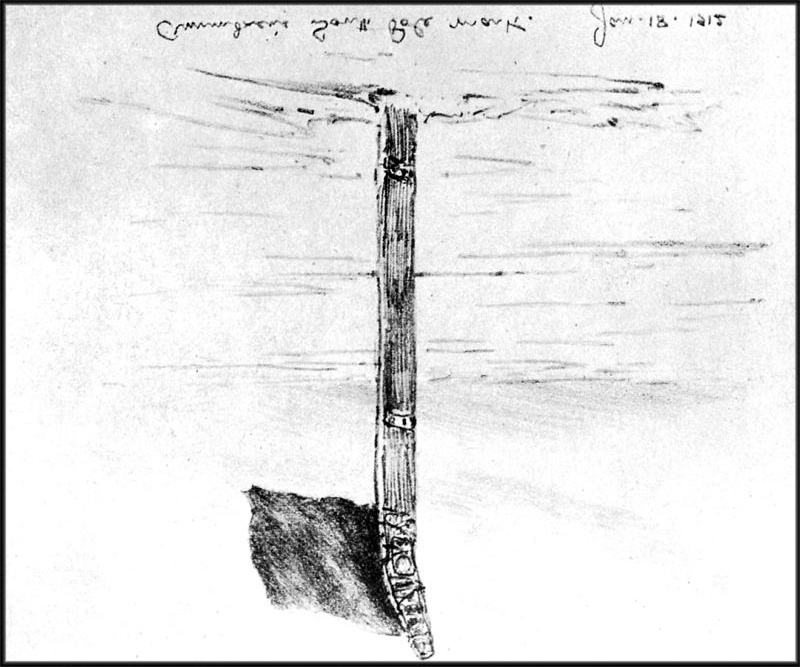 Amundsen's South Pole mark. Jan. 18. 1912